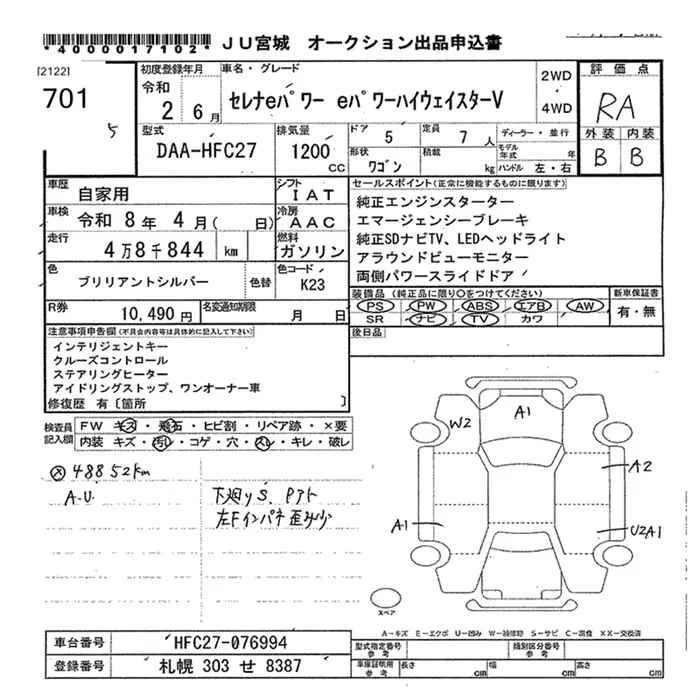 *4000017102* JU宮城 オークション出品申込書
[2122]
701
5
初度登録年月 車名・グレード
令和
2 6月 セレナeパワー eパワーハイウェイスターV
2WD
・
4WD
評価点
RA
外装 内装
B B
型式 排気量 ドア 5 定員 7人 ディーラー・並行
DAA-HFC27 1200 CC
形状 ワゴン 積載 kg モデル年式 年
ハンドル 左・右
車歴 自家用 シフト IAT
車検 令和 8年 4月( 日) 冷房 AAC
走行 4万8千844 km 燃料 ガソリン
色 ブリリアントシルバー 色替 色コード K23
R券 10,490円 名変通知期限 月 日
セールスポイント(正常に機能するものに限ります)
純正エンジンスターター
エマージェンシーブレーキ
純正SDナビTV、LEDヘッドライト
アラウンドビューモニター
両側パワースライドドア
装備品(純正品に限り○をつけてください) 新車保証書
PS PW ABS エアB AW 有・無
SR ナビ TV カワ
後日品
注意事項申告欄(不具合内容等は具体的に記入して下さい)
インテリジェントキー
クルーズコントロール
ステアリングヒーター
アイドリングストップ、ワンオーナー車
修復歴 有〔箇所 〕
検査員記入欄
FW キズ・飛石・ヒビ割・リペア跡・×要
内装 キズ・汚レ・コゲ・穴・スレ・キレ・破レ
48852km
A.U.
下廻りS、Pアト
左Fインパネ歪み少
W2
A1
A2
A1
U2A1
スペア
A-キズ E-エクボ U-凹み W-補修跡 S-サビ C-腐食 XX-交換済
車台番号 HFC27-076994
登録番号 札幌 303 せ 8387
型式指定番号 参考 類別区分番号 参考
車庫証明用 参考 長さ cm 幅 cm 高さ cm